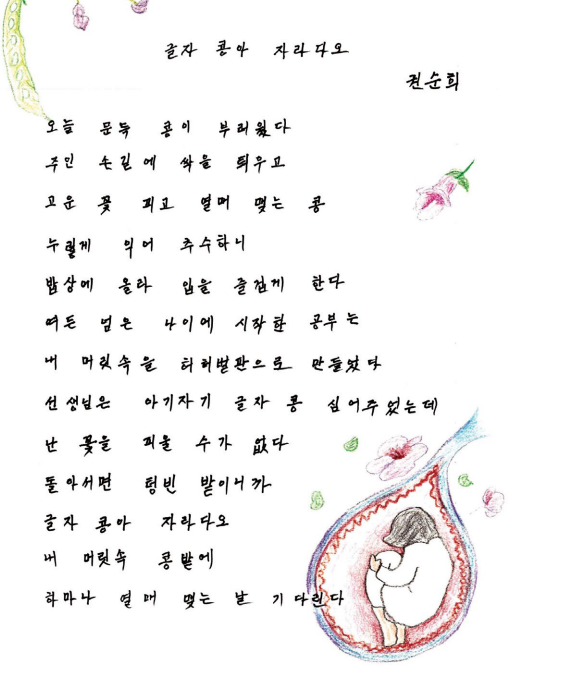 글자 콩아 자라다오
권순희
오늘 문득 콩이 부러웠다
주인 손길에 싹을 틔우고
고운 꽃 피고 열매 맺는 콩
누렇게 익어 추수하니
밥상에 올라 입을 즐겁게 한다
여든 넘은 나이에 시작한 공부는
내 머릿속을 허허벌판으로 만들었다
선생님은 아기자기 글자 콩 심어주었는데
난 꽃을 피울 수가 없다
돌아서면 텅빈 밭이니까
글자 콩아 자라다오
내 머릿속 콩밭에
하마나 열매 맺는 날 기다린다